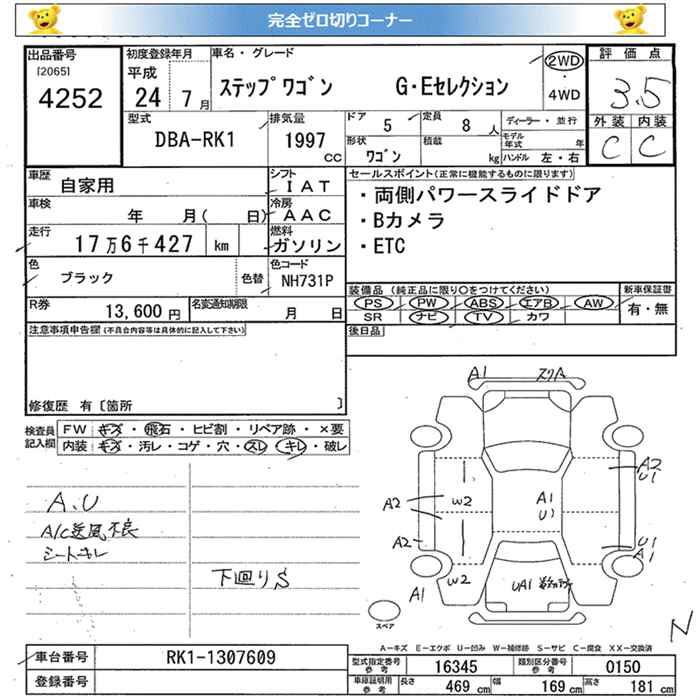 完全ゼロ切りコーナー
出品番号
[2065]
4252
初度登録年月
平成
24 7月
車名・グレード
ステップワゴン G・Eセレクション
2WD
・
4WD
評価点
3.5
外装 内装
C C
型式
DBA-RK1
排気量
1997
CC
ドア 5
定員 8人
形状
ワゴン
積載
kg
ディーラー・並行
モデル年式 年
ハンドル 左・右
車歴
自家用
シフト
IAT
車検
年 月( 日)
冷房
AAC
走行
17万6千427 km
燃料
ガソリン
色
ブラック
色替
色コード
NH731P
R券
13,600円
名変通知期限
月 日
セールスポイント(正常に機能するものに限ります)
・両側パワースライドドア
・Bカメラ
・ETC
装備品(純正品に限り○をつけてください)
PS PW ABS エアB AW
SR ナビ TV カワ
新車保証書
有・無
後日品
注意事項申告欄(不具合内容等は具体的に記入して下さい)
修復歴 有〔箇所 〕
検査員
記入欄
FW キズ・飛石・ヒビ割・リペア跡・×要
内装 キズ・汚レ・コゲ・穴・スレ・キレ・破レ
A.U
A/C送風不良
シートキレ
下廻りS
A1
A2
U1
W2
A1
U1
A2
A2
U1
A1
A1
W2
UA1
スペア
N
A-キズ E-エクボ U-凹み W-補修跡 S-サビ C-腐食 XX-交換済
車台番号
RK1-1307609
登録番号
型式指定番号
参考
16345
類別区分番号
参考
0150
車庫証明用
参考
長さ 469 cm 幅 169 cm 高さ 181 cm